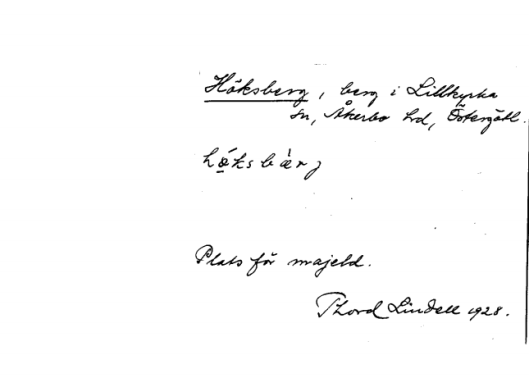 Höksberg, berg i Lillkyrka
sn, Åkerbo hd, Östergötl.
Plats för majeld.
Thord Lindell 1928.